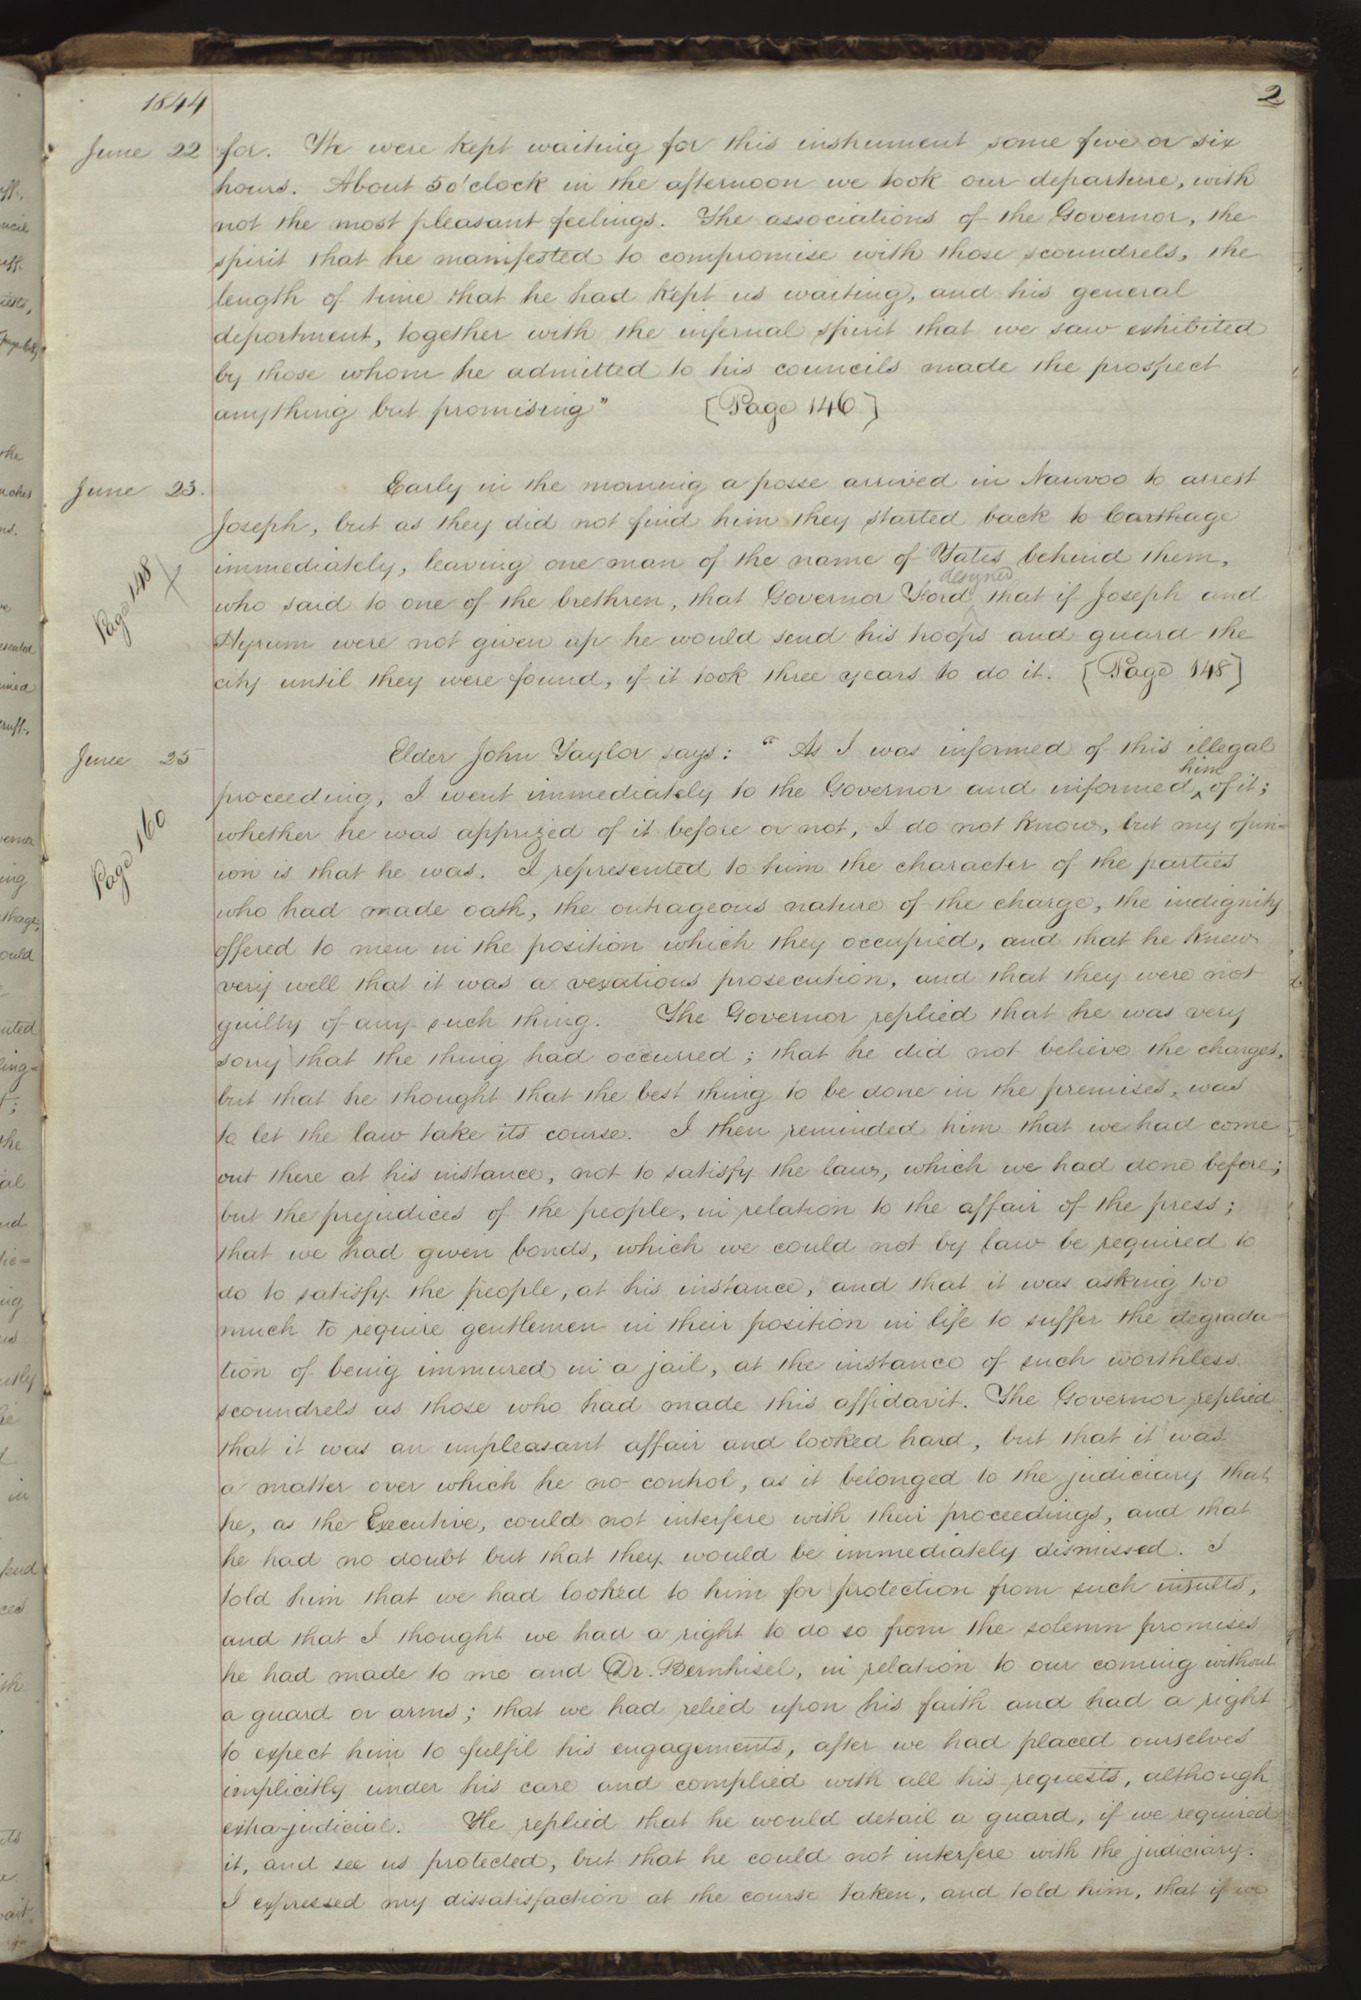 1844
2
June 22 for. We were kept waiting for this instrument some five or six
hours. About 5 o'clock in the afternoon we took our departure, with
not the most pleasant feelings. The associations of the Governor, the
spirit that he manifested to compromise with those scoundrels, the
length of time that he had kept us waiting, and his general
deportment, together with the infernal spirit that we saw exhibited
by those whom he admitted to his councils made the prospect
anything but promising" [Page 146]
June 23. Early in the morning a posse arrived in Nauvoo to arrest
Joseph, but as they did not find him they started back to Carthage
immediately, leaving one man of the name of Yates behind them,
designed
who said to one of the brethren, that Governor Ford, that if Joseph and
Page 148 X
Hyrum were not given up he would send his troops and guard the
city until they were found, if it took three years to do it. [Page 148]
June 25 Elder John Taylor says: "As I was informed of this illegal
him
proceeding, I went immediately to the Governor and informed ^ of it;
whether he was apprized of it before or not, I do not know, but my opin=
Page 160
ion is that he was. I represented to him the character of the parties
who had made oath, the outrageous nature of the charge, the indignity
offered to men in the position which they occupied, and that he knew
very well that it was a vexatious prosecution, and that they were not
guilty of any such thing. The Governor replied that he was very
sorry that the thing had occurred; that he did not believe the charges,
but that he thought that the best thing to be done in the premises, was
to let the law take its course. I then reminded him that we had come
out there at his instance, not to satisfy the law, which we had done before;
but the prejudices of the people, in relation to the affair of the press;
that we had given bonds, which we could not by law be required to
do to satisfy the people, at his instance, and that it was asking too
much to require gentlemen in their position in life to suffer the degrada-
tion of being immured in a jail, at the instance of such worthless
scoundrels as those who had made this affidavit. The Governor replied
that it was an unpleasant affair and looked hard, but that it was
a matter over which he no control, as it belonged to the judiciary that
he, as the Executive, could not interfere with their proceedings, and that
he had no doubt but that they would be immediately dismissed. I
told him that we had looked to him for protection from such insults,
and that I thought we had a right to do so from the solemn promises
he had made to me and Dr. Bernhisel, in relation to our coming without
a guard or arms; that we had relied upon his faith and had a right
to expect him to fulfil his engagements, after we had placed ourselves
implicitly under his care and complied with all his requests, although
extra-judicial. He replied that he would detail a guard, if we required
it, and see us protected, but that he could not interfere with the judiciary.
I expressed my dissatisfaction at the course taken, and told him, that if we